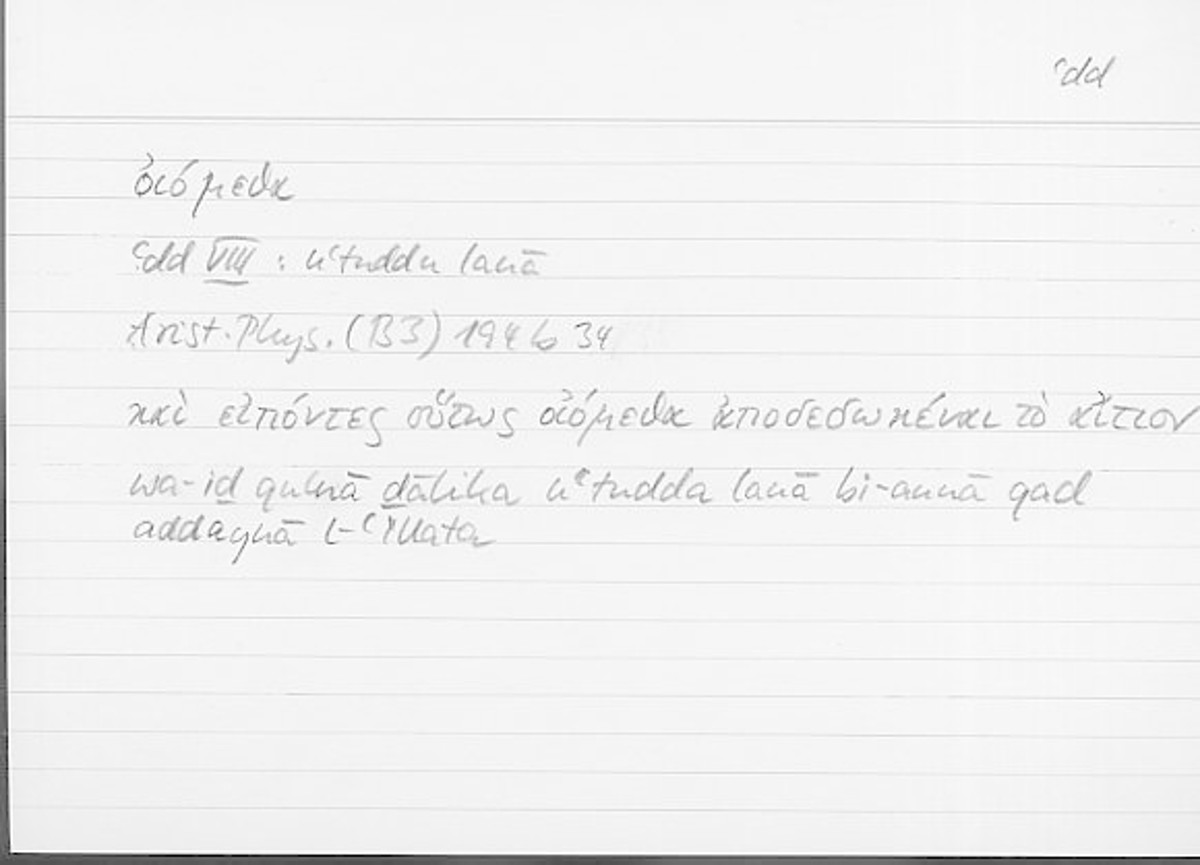 ʿdd
οἰόμεθα
ʿdd VIII : uʿtuddu lanā
Arist. Phys. (B3) 194b34
καὶ εἰπόντες οὕτως οἰόμεθα ἀποδεδωκέναι τὸ αἴτιον
wa-iḏ qulnā ḏālika uʿtudda lanā bi-annā qad
addaynā l-ʿillata